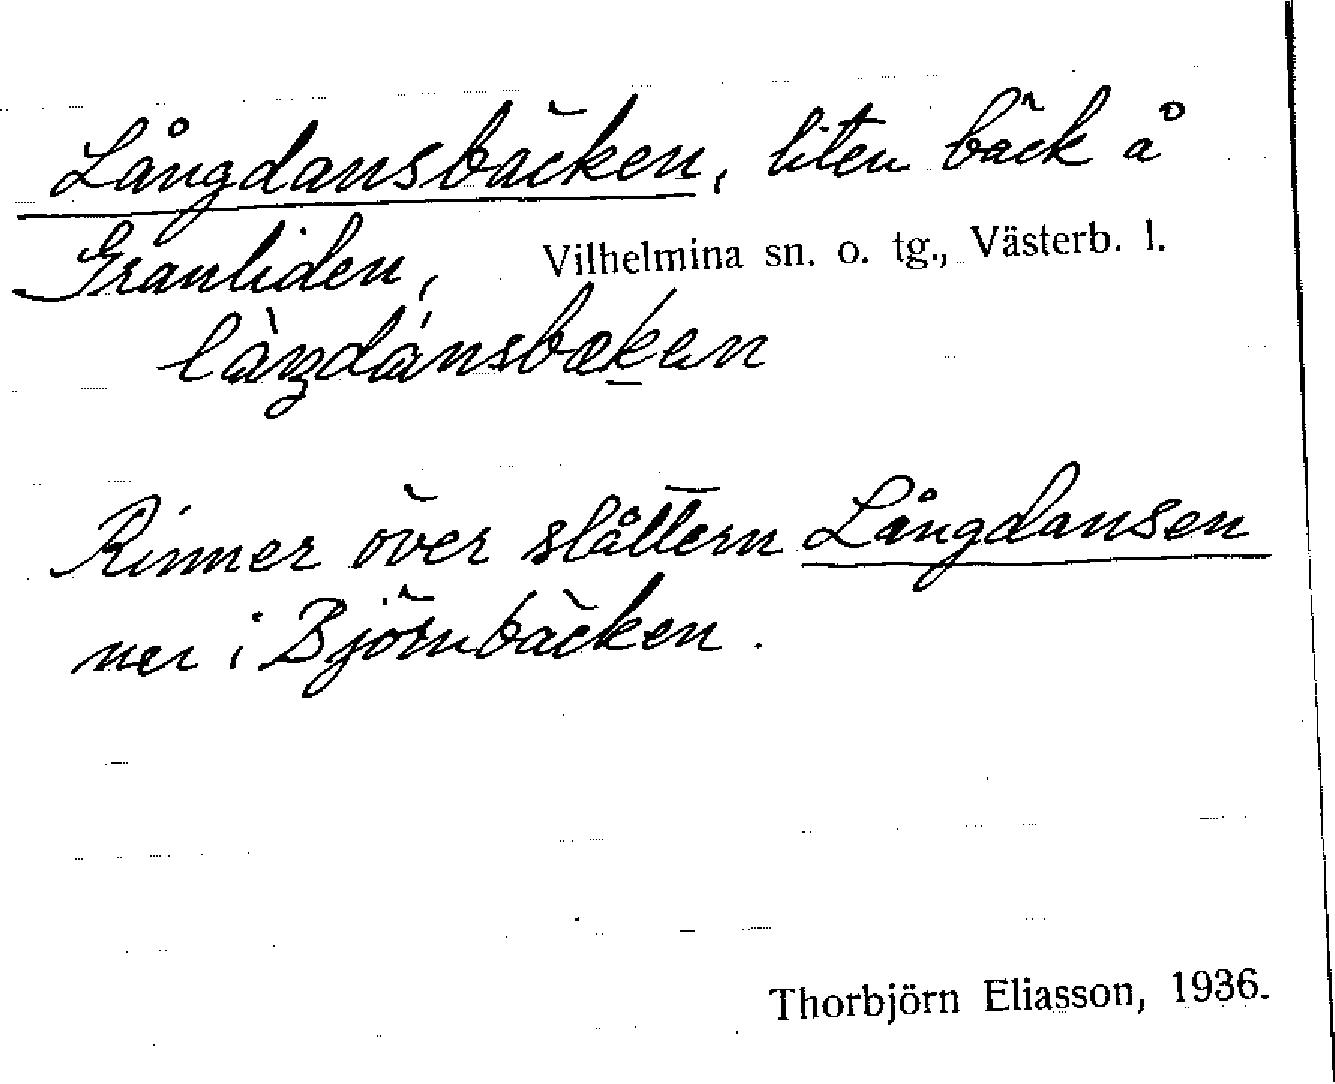 Långdansbäcken, liten bäck å
Granliden, Vilhelmina sn. o. tg., Västerb. l.
Rinner över slåttern Långdansen
ner i Björnbäcken.
Thorbjörn Eliasson, 1936.